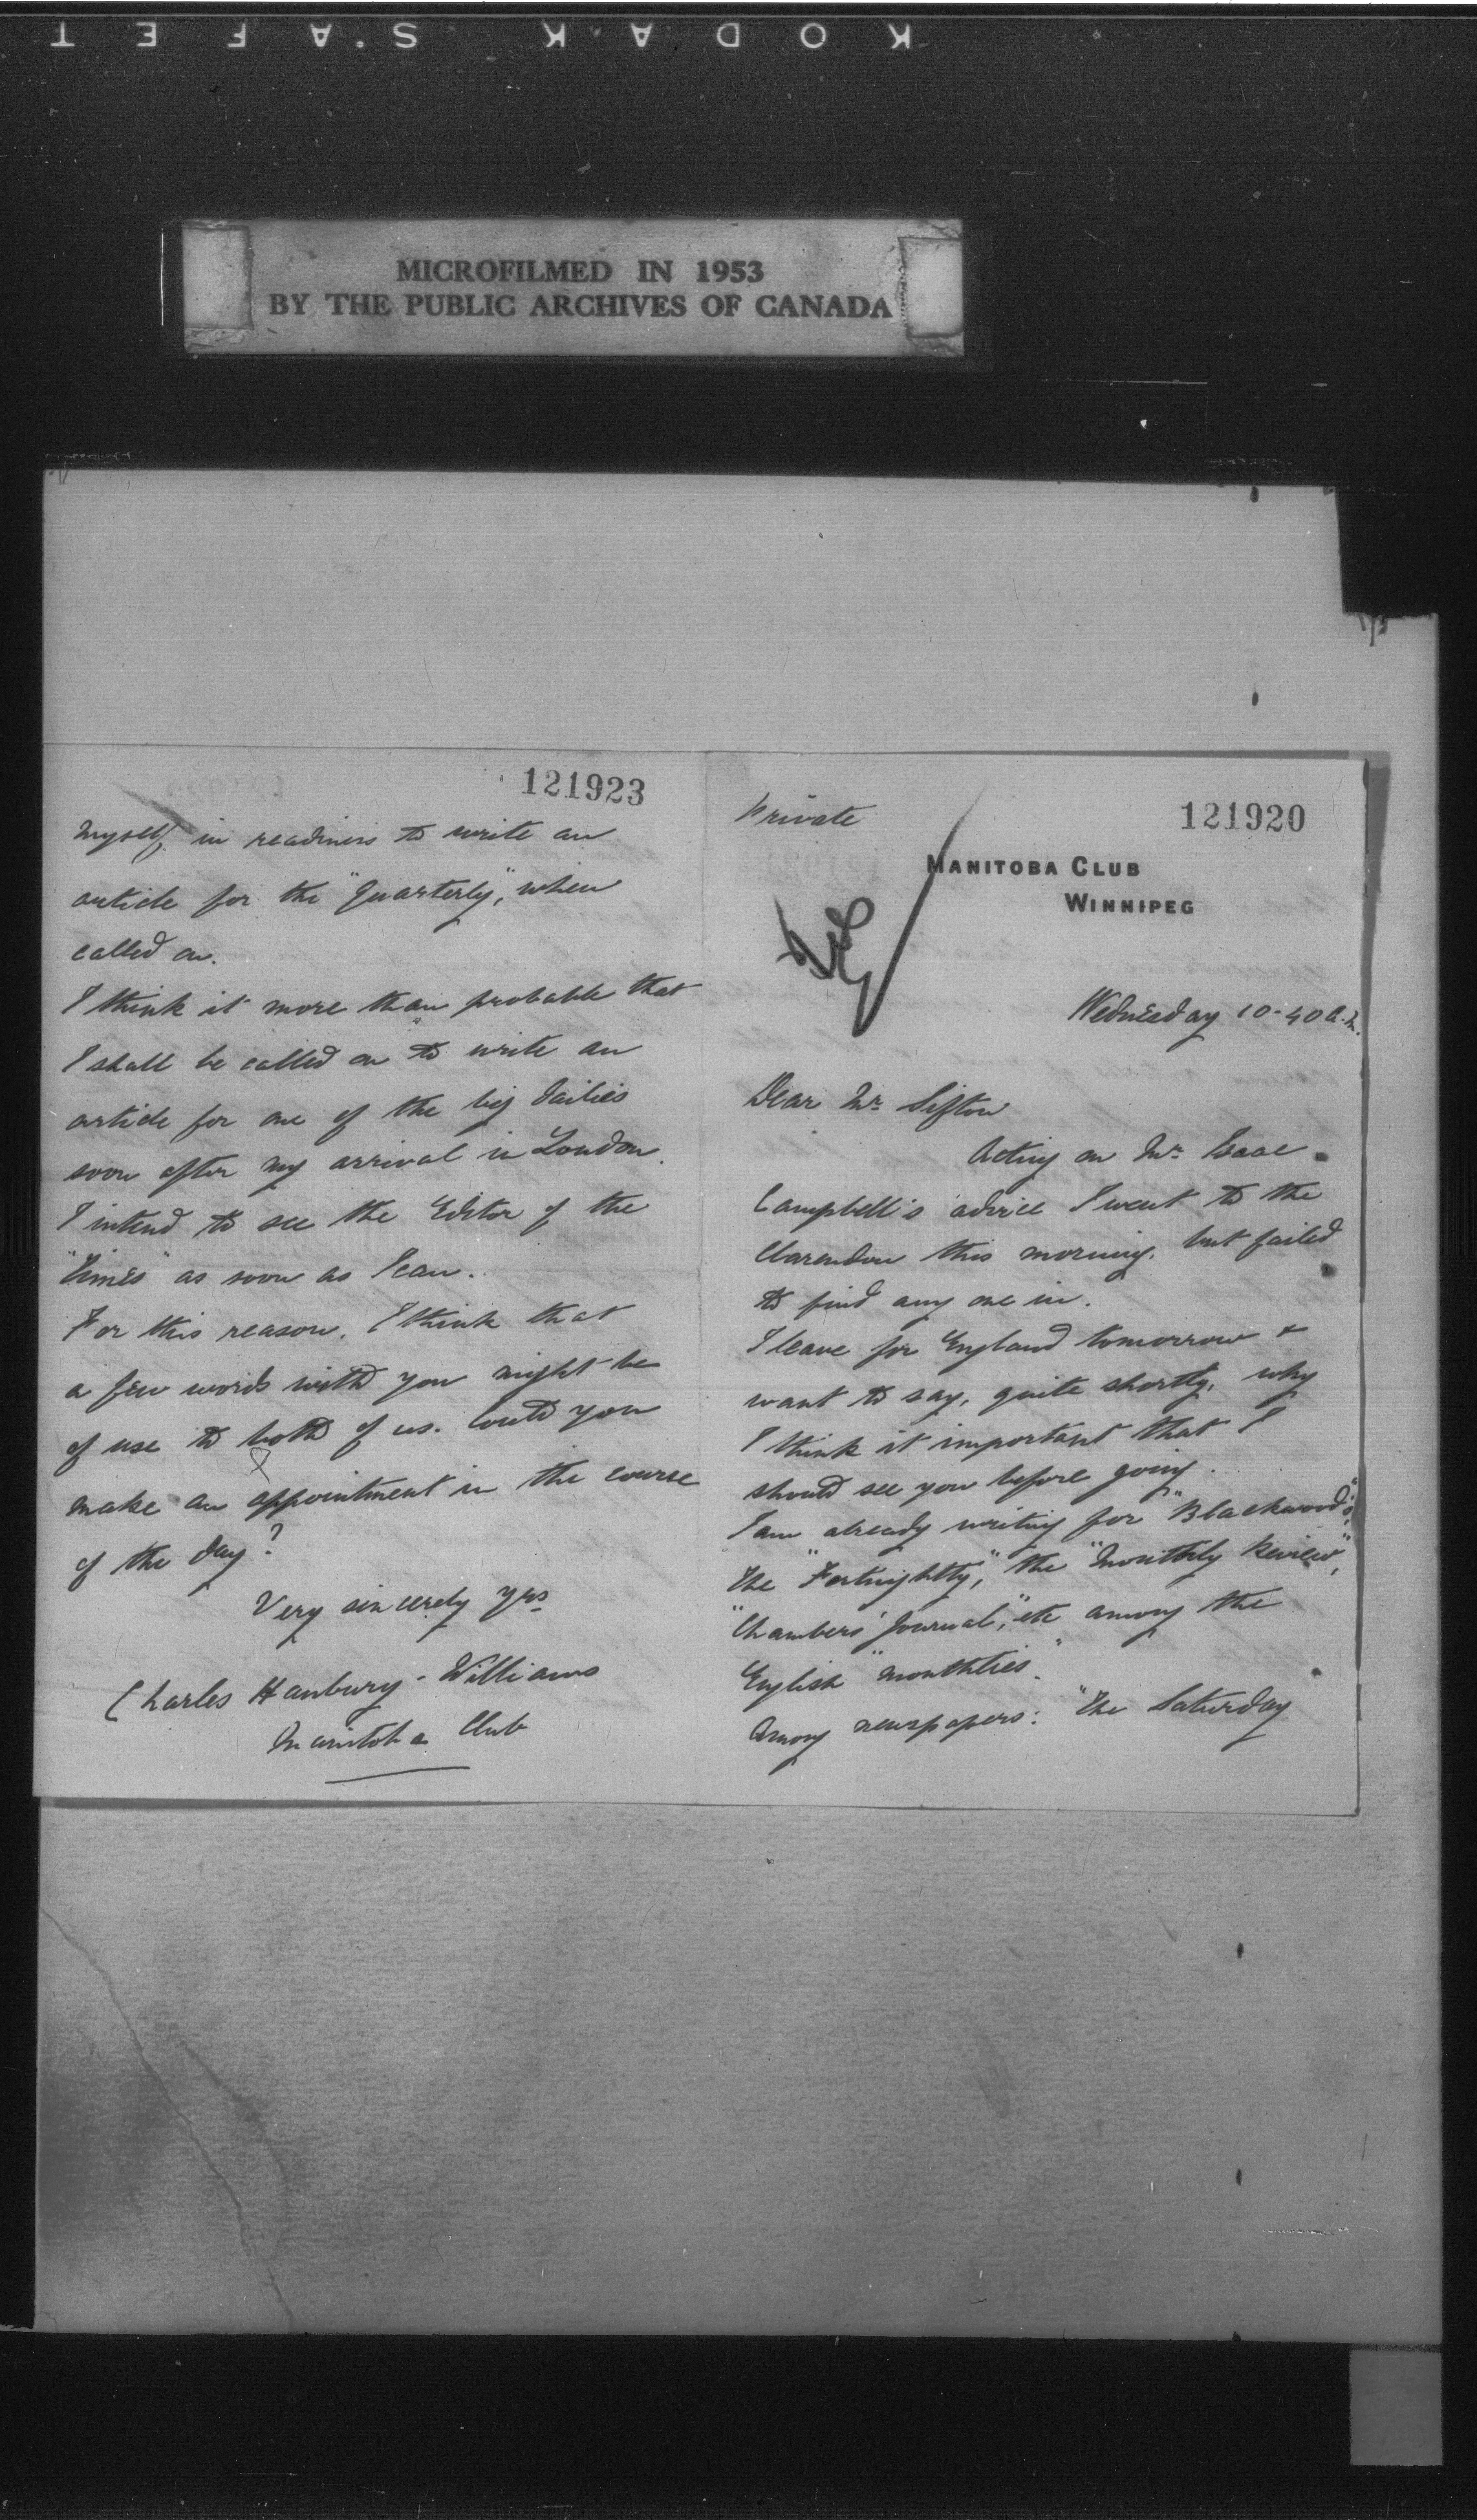 KODAK SAFET
MICROFILMED IN 1953
BY THE PUBLIC ARCHIVES OF CANADA
121923
myself in readiness to write an
article for the "Quarterly", when
called on.
I think it more than probable that
I shall be called on to write an
article for one of the big dailies
soon after my arrival in London.
I intend to see the Editor of the
"Times" as soon as I can.
For this reason, I think that
a few words with you might be
of use to both of us. Could you
make an appointment in the course
of the day?
Very sincerely yrs
Charles Hanbury-Williams
Manitoba Club
Private
121920
MANITOBA CLUB
WINNIPEG
Wednesday 10-40 a.m.
Dear Mr. Sifton
Acting on Mr. Isaac
Campbell's advice I went to the
Clarendon this morning, but failed
to find any one in.
I leave for England tomorrow &
want to say, quite shortly, why
I think it important that I
should see you before going.
I am already writing for "Blackwood's",
the "Fortnightly", the "Monthly Review",
"Chambers' Journal", etc among the
English "monthlies".
Among newspapers: "The Saturday